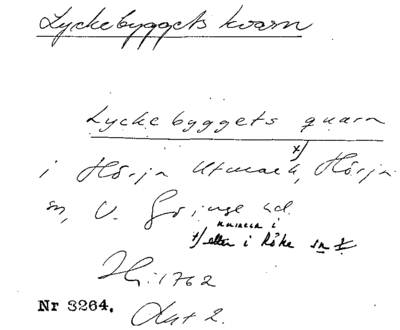 Lyckebyggets kvarn
Lyckebyggets quarn
i Hörja Utmark, x) Hörja
sn, V. Göinge hd.
x) eller i Röke sn
Hi: 1762
Akt 2.
Nr 3264.